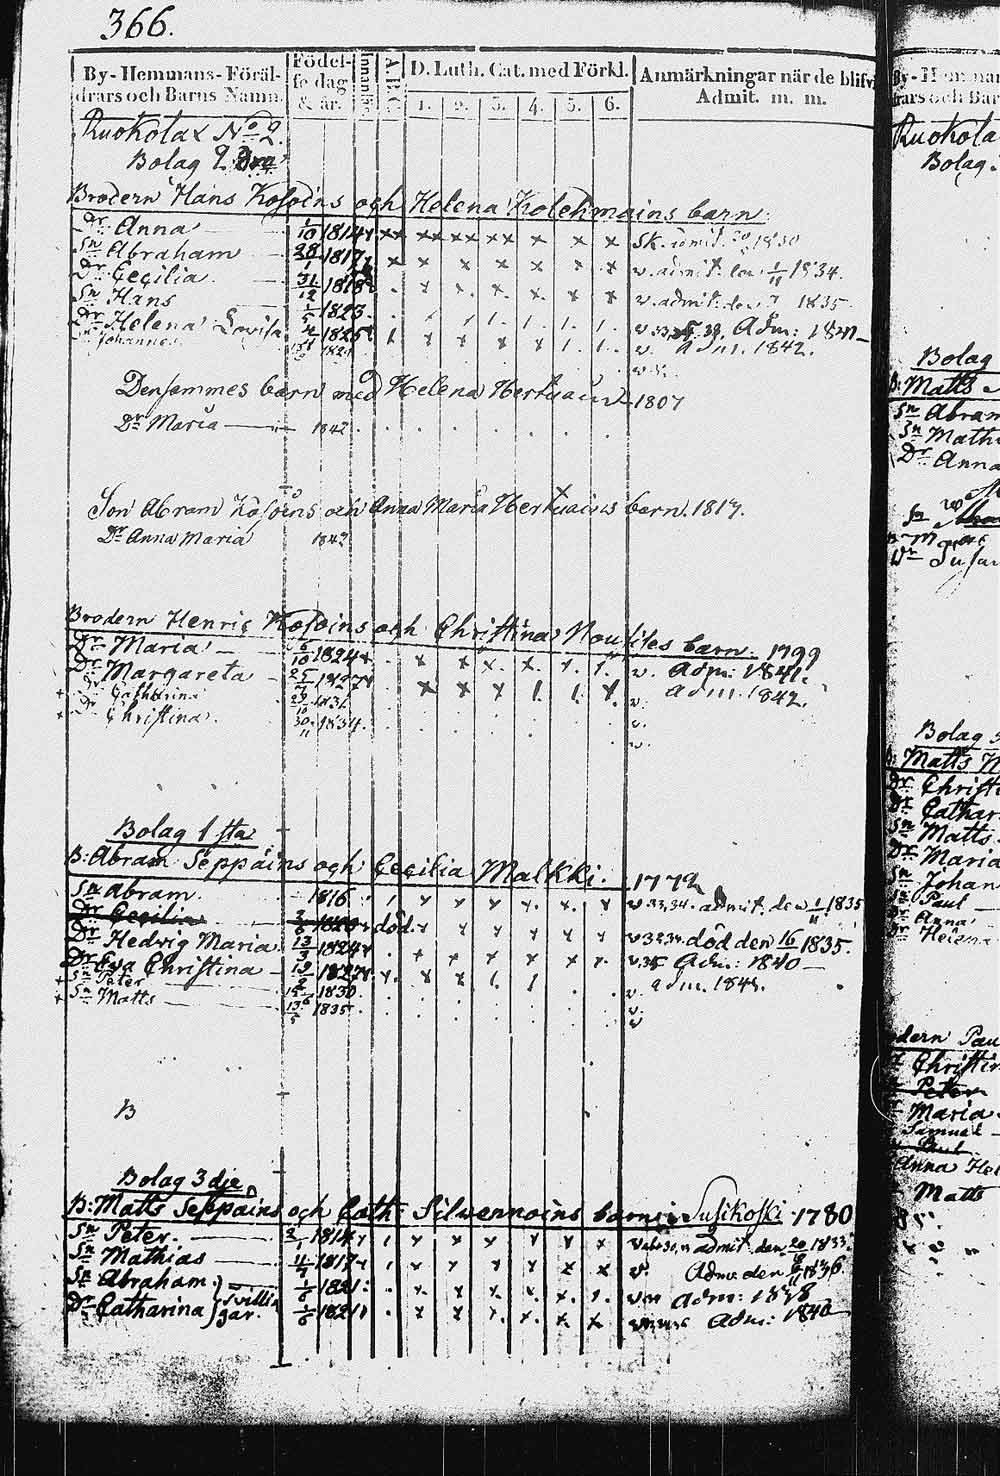 366.
By- Hemmans- Föräl-
drars och Barns Namn.
Födel-
se dag
& år.
A.B.C.
D. Luth. Cat. med Förkl.
1. 2. 3. 4. 5. 6.
Anmärkningar när de blifvi
Admit. m. m.
Ruokolax No 2.
Bolag 2 dra
Brodern Hans Kosoins och Helena Kolehmains barn
Dr Anna 1/10 1814 Sk. admit. 1830
Sn Abraham 28 1817 v. admit. den 1/11 1834.
Dr Cecilia 31/12 1818 v. admit. den 1835
Sn Hans 1/5 1823 Adm: 1841
Dr Helena Lovisa 1825 v. adm. 1842.
Johannes
Densammes barn med Helena Hertuain 1807
Dr Maria 1842
Son Abram Kosoins och Anna Maria Hertuains barn. 1817.
Dr Anna Maria 1842
Brodern Henric Kosoins och Christina Nousites barn. 1799
Dr Maria 6/10 1824 v. Adm: 1841.
Dr Margareta 25 1827 adm. 1842.
Dr Catharina v.
Dr Christina. 30/11 1834. v.
Bolag 1 sta
B: Abram Seppäins och Cecilia Malkki. 1772
Sn Abram 1816 v. 33, 34. admit. den 1/11 1835
Dr Cecilia död. död den 16/11 1835.
Dr Hedvig Maria 13/3 1824 v. 35 Adm: 1840
Dr Eva Christina 1827 v. adm. 1843.
Sn Peter 1830. v.
Sn Matts 13/5 1835 v.
B
Bolag 3 dje
B: Matts Seppäins och Cath: Silwennoins barn Susikoski 1780
Sn Peter. 1814 admit. den 20/10 1833.
Sn Mathias 11/7 1817 v. Adm: den 1836
Sn Abraham 1/6 1821 Adm: 1838
Dr Catharina 1/6 1821 Adm: 1840
tvillin
gar.
By- Hemman
drars och Bar
Ruokola
Bolag.
Bolag
B: Matts
Sn Abram
Sn Math
Dr Anna
Dr Susan
Bolag
B: Matts
Dr Christi
Dr Cathar
Sn Matts
Dr Maria
Sn Johan
Sn Paul
Dr Anna
Dr Helena
odern Pau
Christin
Peter
Maria
Samuel
Paul
Anna Hel
Matts